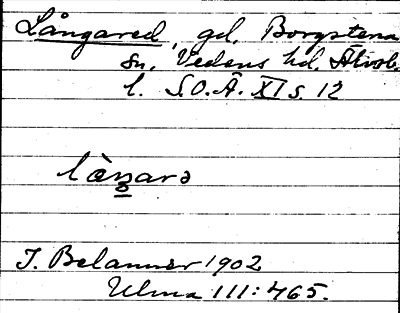 Långared, gd, Borgstena
sn, Vedens hd. Älvsb.
l. S.O.Ä. XI s. 12
lån̲arə
J. Belanner 1902
Ulma 111:465.